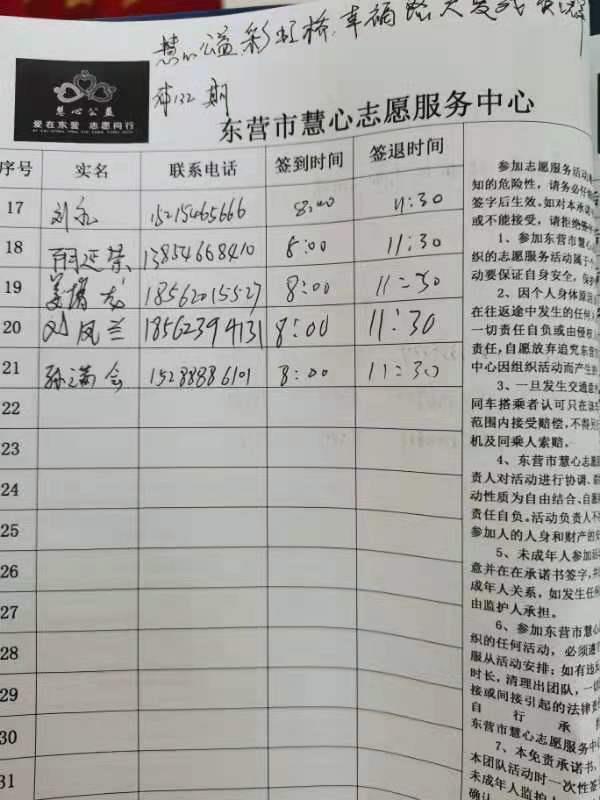 第132期
慧心公益
爱在东营 志愿同行
东营市慧心志愿服务中心
序号 实名 联系电话 签到时间 签退时间
17 刘 15215465666 8:00 11:30
18 13854668410 8:00 11:30
19 18562015527 8:00 11:30
20 刘凤兰 18562394131 8:00 11:30
21 孙 15288886101 8:00 11:30
22
23
24
25
26
27
28
29
30
31
参加志愿服务活动
知的危险性，请务必仔
签字后生效。如对本承诺
或不能接受，请拒绝
1、参加东营市慧心
织的志愿服务活动属于
动要保证自身安全，
2、因个人身体原
在往返途中发生的任何
一切责任自负或由侵权
责任，自愿放弃追究东营
中心因组织活动而产生的
3、一旦发生交通
同车搭乘者认可只在该车
范围内接受赔偿，不得另
机及同乘人索赔。
4、东营市慧心志愿
责人对活动进行协调、
动性质为自由结合、自愿
责任自负。活动负责人不
参加人的人身和财产的
5、未成年人参加
意并在在承诺书签字，
成年人关系，如发生任何
由监护人承担。
6、参加东营市慧心
织的任何活动，必须遵
服从活动安排；如有违
时长，清理出团队，一切
接或间接引起的法律责
自行承
东营市慧心志愿服务中
7、本免责承诺书，
本团队活动时一次性签
未成年人监护人
确认